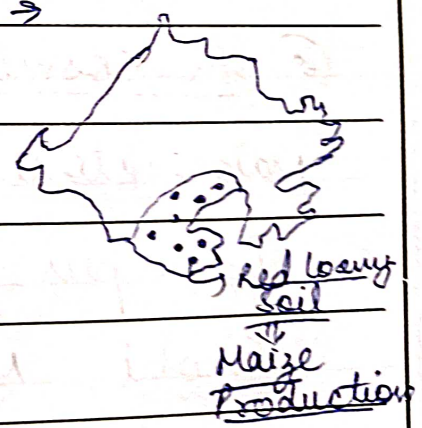 →
Red loamy
soil
⇓
Maize
Production